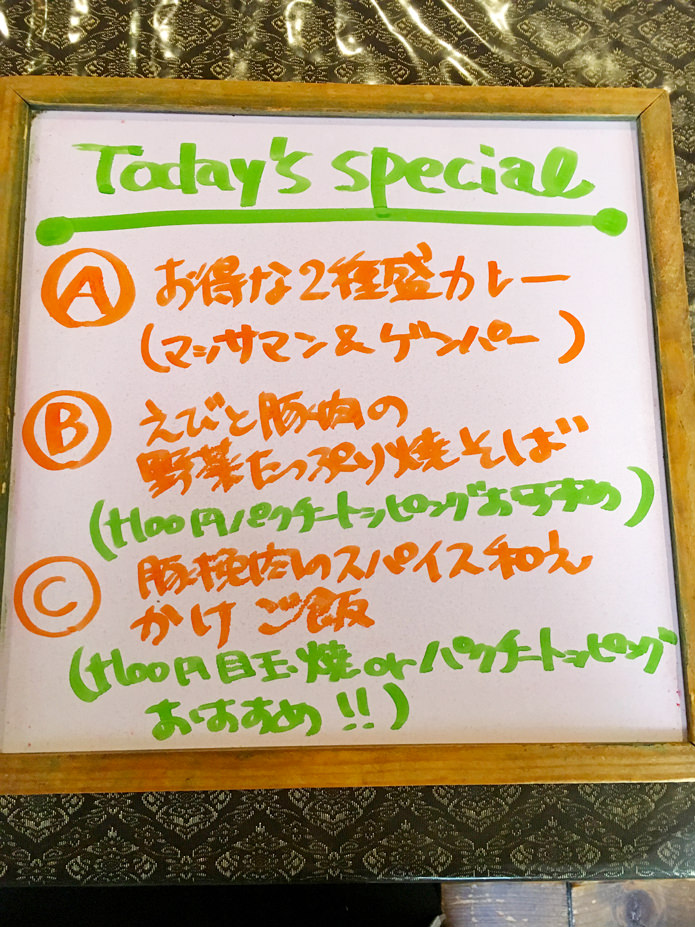 Today's special
A お得な2種盛カレー
(マッサマン&ゲンパー)
B えびと豚肉の
野菜たっぷり焼そば
(+100円パクチートッピングおすすめ)
C 豚挽肉のスパイス和え
かけご飯
(+100円目玉焼orパクチートッピング
おすすめ!!)